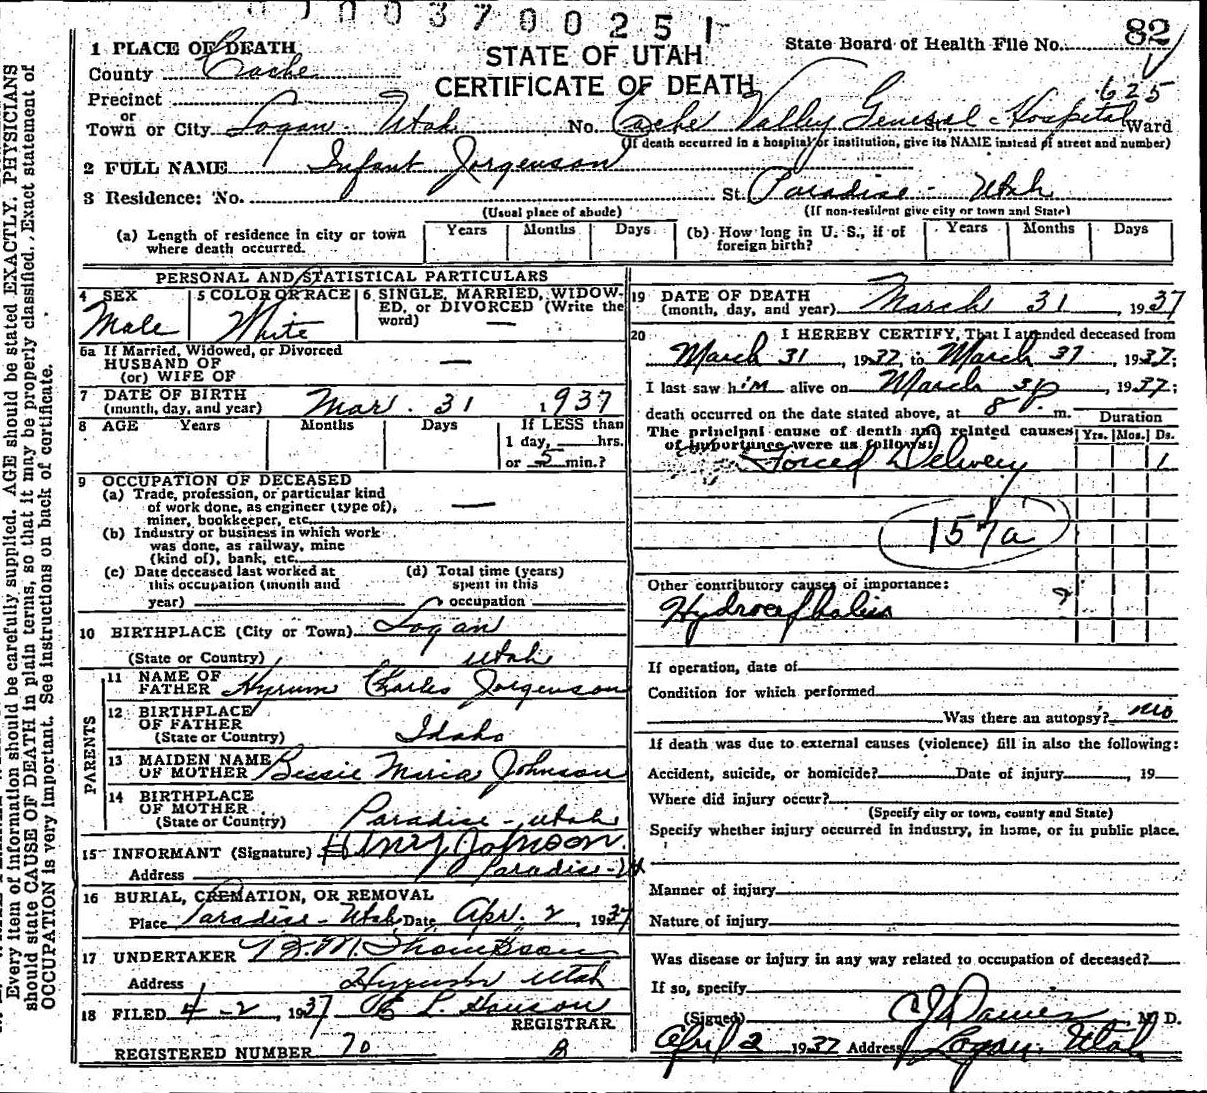 0 0 0 0 3 7 0 0 2 5 1
82
1 PLACE OF DEATH
STATE OF UTAH
State Board of Health File No.
County Cache
CERTIFICATE OF DEATH
625
Precinct
or
Town or City Logan - Utah No. Cache Valley General St. Hospital Ward
(If death occurred in a hospital or institution, give its NAME instead of street and number)
2 FULL NAME Infant Jorgenson
3 Residence: No. St. Paradise - Utah
(Usual place of abode) (If non-resident give city or town and State)
(a) Length of residence in city or town where death occurred. Years Months Days (b) How long in U. S., if of foreign birth? Years Months Days
PERSONAL AND STATISTICAL PARTICULARS
4 SEX Male
5 COLOR OR RACE White
6 SINGLE, MARRIED, WIDOW-
ED, or DIVORCED (Write the
word) —
6a If Married, Widowed, or Divorced
HUSBAND OF —
(or) WIFE OF
7 DATE OF BIRTH
(month, day, and year) Mar. 31 1937
8 AGE Years Months Days If LESS than
1 day, hrs.
or 5 min.?
9 OCCUPATION OF DECEASED
(a) Trade, profession, or particular kind
of work done, as engineer (type of), —
miner, bookkeeper, etc.
(b) Industry or business in which work
was done, as railway, mine
(kind of), bank, etc.
(c) Date deceased last worked at
this occupation (month and
year)
(d) Total time (years)
spent in this
occupation
10 BIRTHPLACE (City or Town) Logan
(State or Country) Utah
PARENTS
11 NAME OF
FATHER Hyrum Charles Jorgenson
12 BIRTHPLACE
OF FATHER
(State or Country) Idaho
13 MAIDEN NAME
OF MOTHER Bessie Maria Johnson
14 BIRTHPLACE
OF MOTHER
(State or Country) Paradise - Utah
15 INFORMANT (Signature) Henry Johnson.
Address Paradise - Ut
16 BURIAL, CREMATION, OR REMOVAL
Place Paradise - Utah Date Apr. 2, 1937
17 UNDERTAKER M. Thompson
Address Hyrum Utah
18 FILED 4 - 2, 1937 L. Hanson
REGISTRAR
REGISTERED NUMBER 70
19 DATE OF DEATH
(month, day, and year) March 31 1937
20 I HEREBY CERTIFY, That I attended deceased from
March 31, 1937, to March 31, 1937;
I last saw him alive on March 31, 1937;
death occurred on the date stated above, at 8 p. m.
Duration
The principal cause of death and related causes
of importance were as follows:
Yrs. Mos. Ds.
Forced Delivery 1
157a
Other contributory causes of importance:
Hydrocephalus ?
If operation, date of
Condition for which performed
Was there an autopsy? no
If death was due to external causes (violence) fill in also the following:
Accident, suicide, or homicide? Date of injury, 19
Where did injury occur?
(Specify city or town, county and State)
Specify whether injury occurred in industry, in home, or in public place.
Manner of injury
Nature of injury
Was disease or injury in any way related to occupation of deceased?
If so, specify
(Signed) M. D.
April 2 1937 Address Logan, Utah
Every item of information should be carefully supplied. AGE should be stated EXACTLY. PHYSICIANS
should state CAUSE OF DEATH in plain terms, so that it may be properly classified. Exact statement of
OCCUPATION is very important. See instructions on back of certificate.